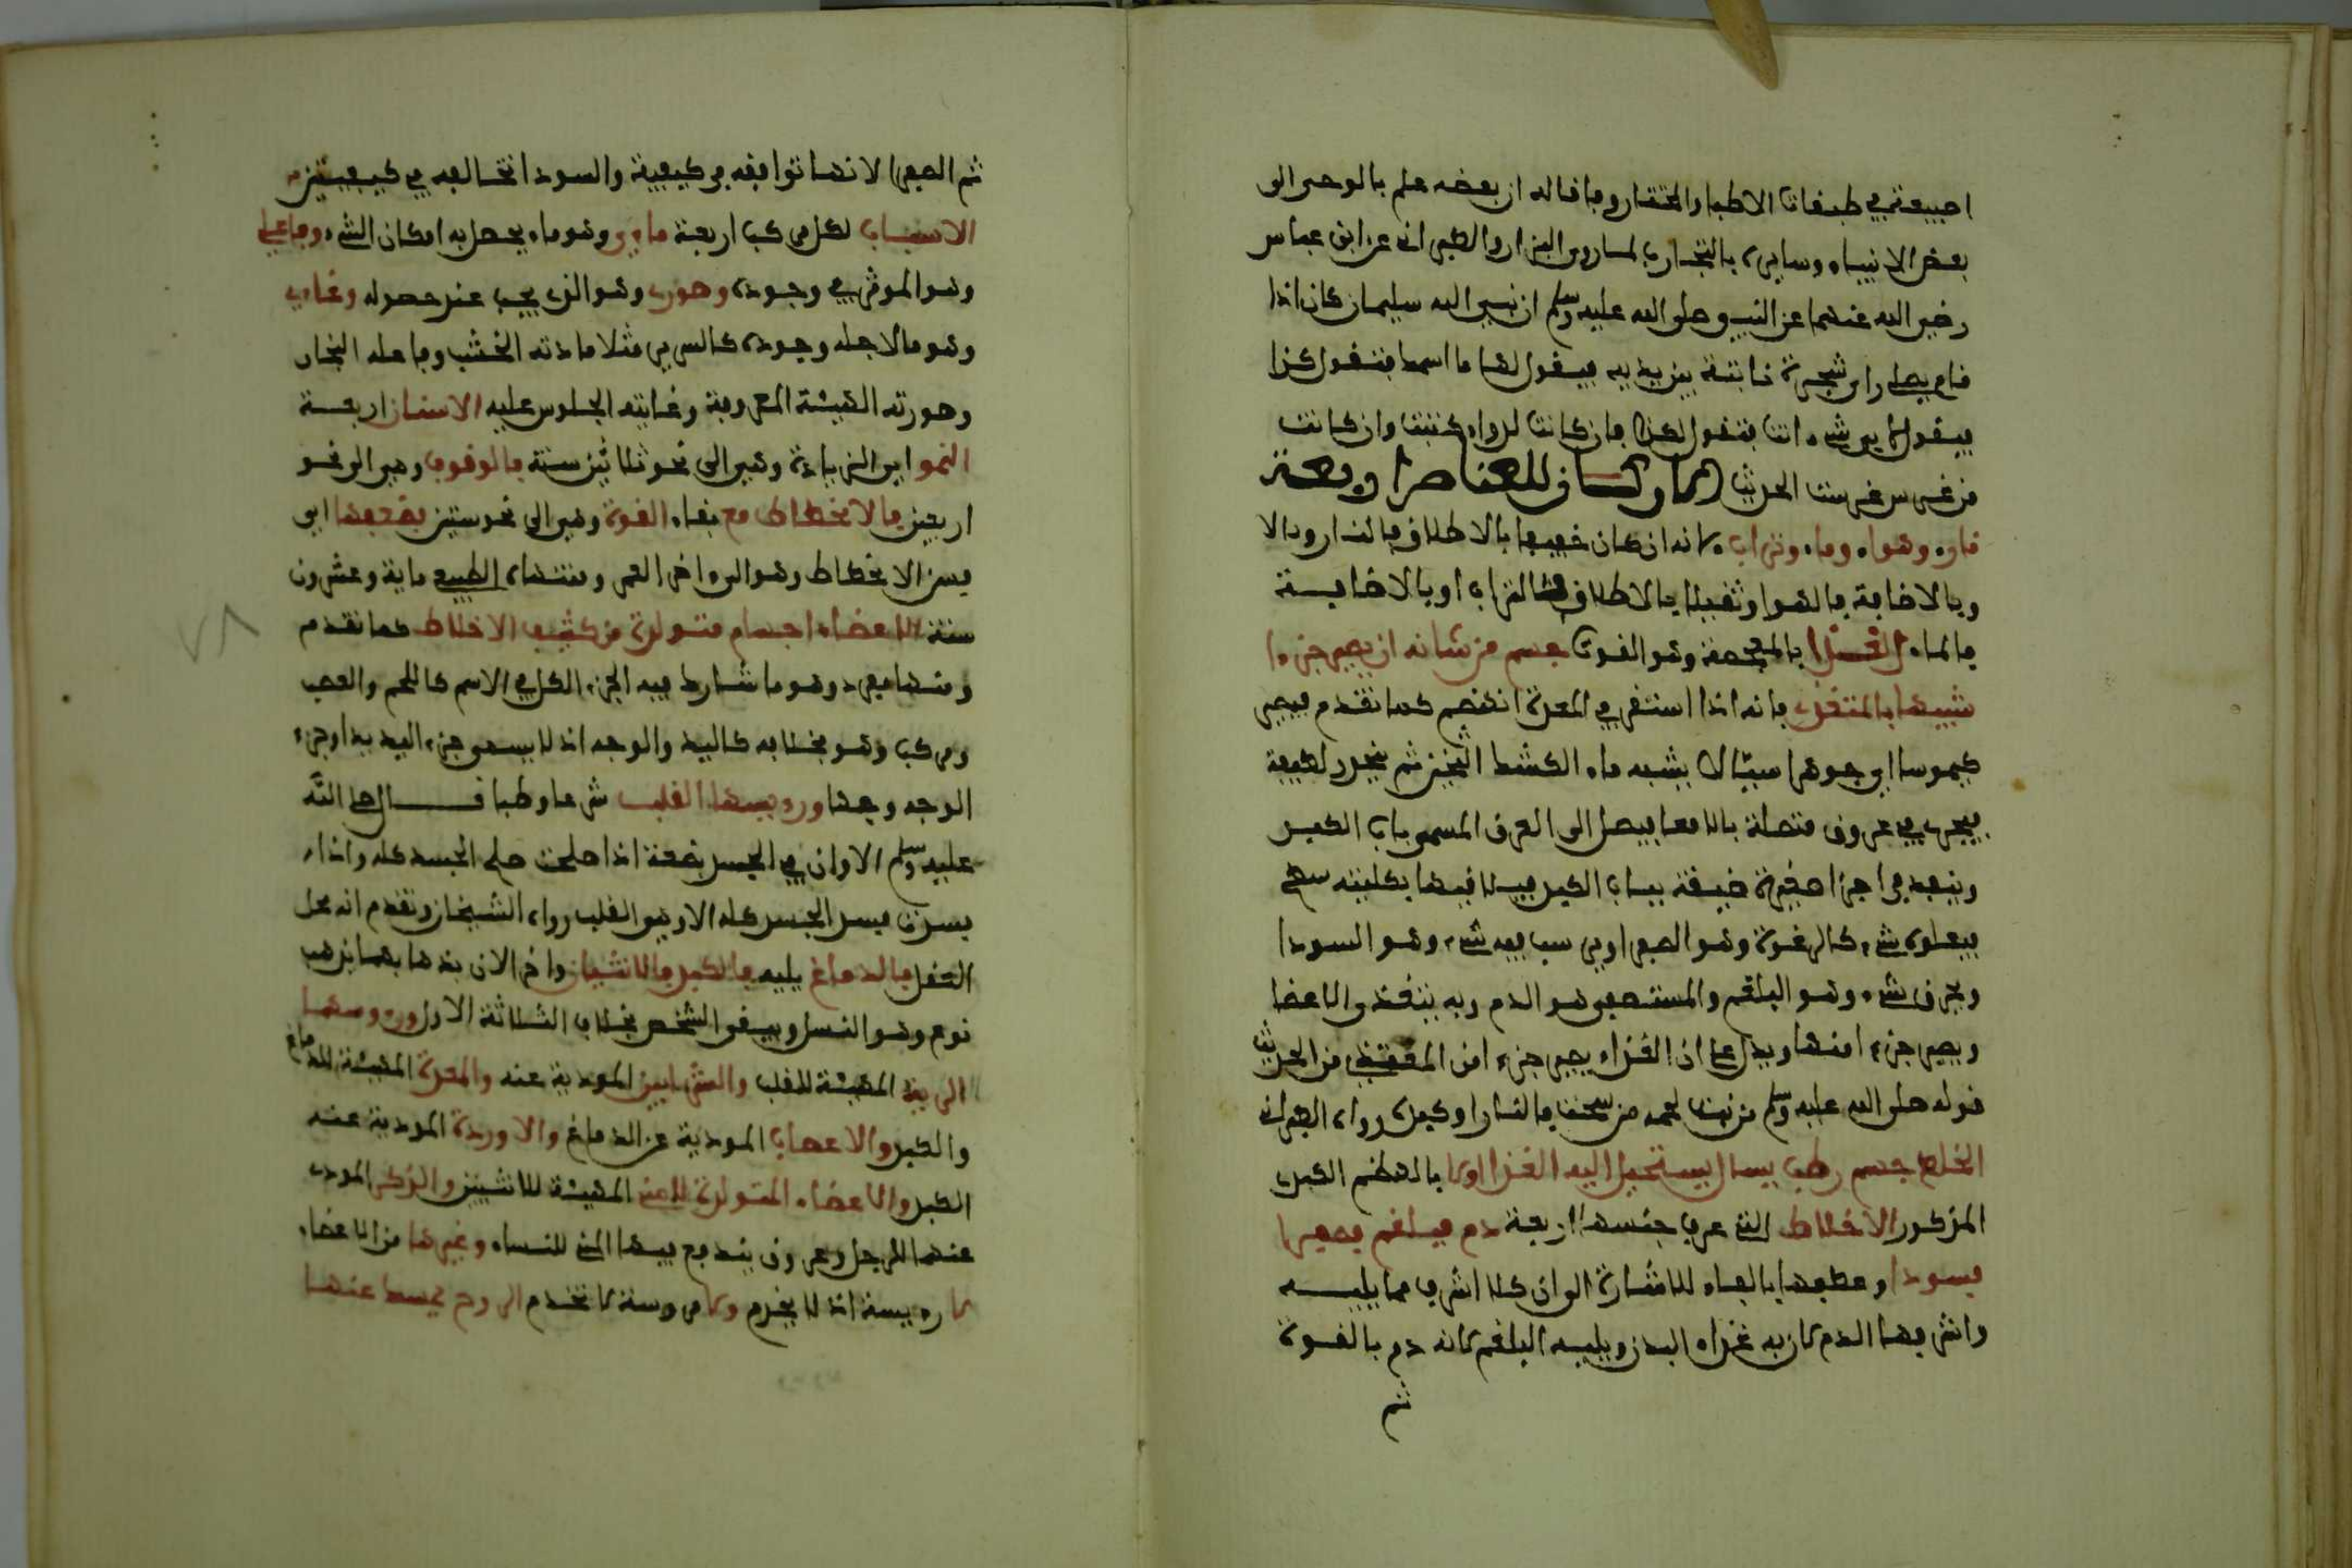 اصيبعة في طبقات الاطباء والمختار وفاقا له ان بعضه علم بالوحي الى
بعض الانبياء وسايره بالتجارب لما روى البزار والطبراني عن ابن عباس
رضي الله عنهما عن النبي صلى الله عليه وسلم ان نبي الله سليمان كان اذا
قام يصلي راى شجرة نابتة بين يديه فيقول لها ما اسمك فتقول كذا
فيقول لاي شيء انت فتقول لكذا فان كانت لدواء كتبت وان كانت
من غرس غرست الحديث الاركان للعناصر اربعة
نار وهواء وماء وتراب لانه ان كان خفيفا بالاطلاق فالنار والا
وبالاضافة فالهوا وثقيلا بالاطلاق فالتراب او بالاضافة
فالماء الغذا بالمعجمة وهو القوت جسم من شانه ان يصير جزءا
شبيها بالمتغذي فانه اذا استقر في المعدة انهضم كما تقدم فيصير
كيموسا اي جوهرا سيالا يشبه ماء الكشك الثخين ثم ينحدر لطيفه
فيجري في عروق متصلة بالامعا فيصل الى العرق المسمى باب الكبد
وينفد في اجزا صغيرة ضيقة بباب الكبد فيلاقيها بكليته
فيعلوه شيء كالرغوة وهو الصفرا ويرسب فيه شيء وهو السودا
ويحرق شيء وهو البلغم والمستصفى هو الدم وبه يتغذى الاعضا
ويصير جزءا منها ويدل على ان الغذاء يصير جزءا من المغتذي من الحديث
قوله صلى الله عليه وسلم من نبت لحمه من سحت فالنار اولى به رواه الطبراني
الخلط جسم رطب سيال يستحيل اليه الغذا اولا بالهضم الكبدي
المذكور الاخلاط التي عرف جنسها اربعة دم فبلغم فصفرا
فسودا وعطفها بالفاء للاشارة الى ان كلا اشرف مما يليه
واشرفها الدم لان به غذاء البدن ويليه البلغم لانه دم بالقوة
ثم
ثم الصفرا لانها توافقه في كيفية والسودا تخالفه في كيفيتين
الاسباب لكل مركب اربعة مادي وهو ما يحصل به امكان الشيء وفاعلي
وهو الموثر في وجوده وصوري وهو الذي يجب عند حصوله وغايي
وهو ما لاجله وجوده كالسرير مثلا مادته الخشب وفاعله النجار
وصورته الهيئة المعروفة وغايته الجلوس عليه الاسنان اربعة
النمو اي الزيادة وهي الى نحو ثلاثين سنة فالوقوف وهي الى نحو
اربعين فالانحطاط مع بقاء القوة وهي الى نحو ستين فضعفها اي
فسن الانحطاط وهو الى اخر العمر ومنتهاه الطبيعي ماية وعشرون
سنة الاعضاء اجسام متولدة من كثيف الاخلاط كما تقدم
ومنها مفرد وهو ما شارك فيه الجزء الكل في الاسم كاللحم والعصب
ومركب وهو بخلافه كاليد والوجه اذ لا يسمى جزء اليد يدا وجزء
الوجه وجها ورءيسها القلب شرعا وطبا قال صلى الله
عليه وسلم الا وان في الجسد مضغة اذا صلحت صلح الجسد كله واذا
فسدت فسد الجسد كله الا وهي القلب رواه الشيخان وتقدم انه محل
العقل فالدماغ يليه فالكبد فالانثيان واخر الان بذهابهما يذهب
نوع وهو النسل ويبقى الشخص بخلاف الثلاثة الاول ومرءوسها
الرية المهيئة للقلب والشرايين المودية عنه والمعدة المهيئة للدماغ
والكبد والاعصاب المودية عن الدماغ والاوردة المودية عنه
الكبد والاعضاء المتولدة للمني المهيئة للانثيين والذكر المودي
عنهما للرجل وعروق يندفع فيها المني للنساء وغيرها من الاعضاء
لا رءيسة اذ لا يخدم ولا مرءوسة لا تخدم الروح نمسك عنها